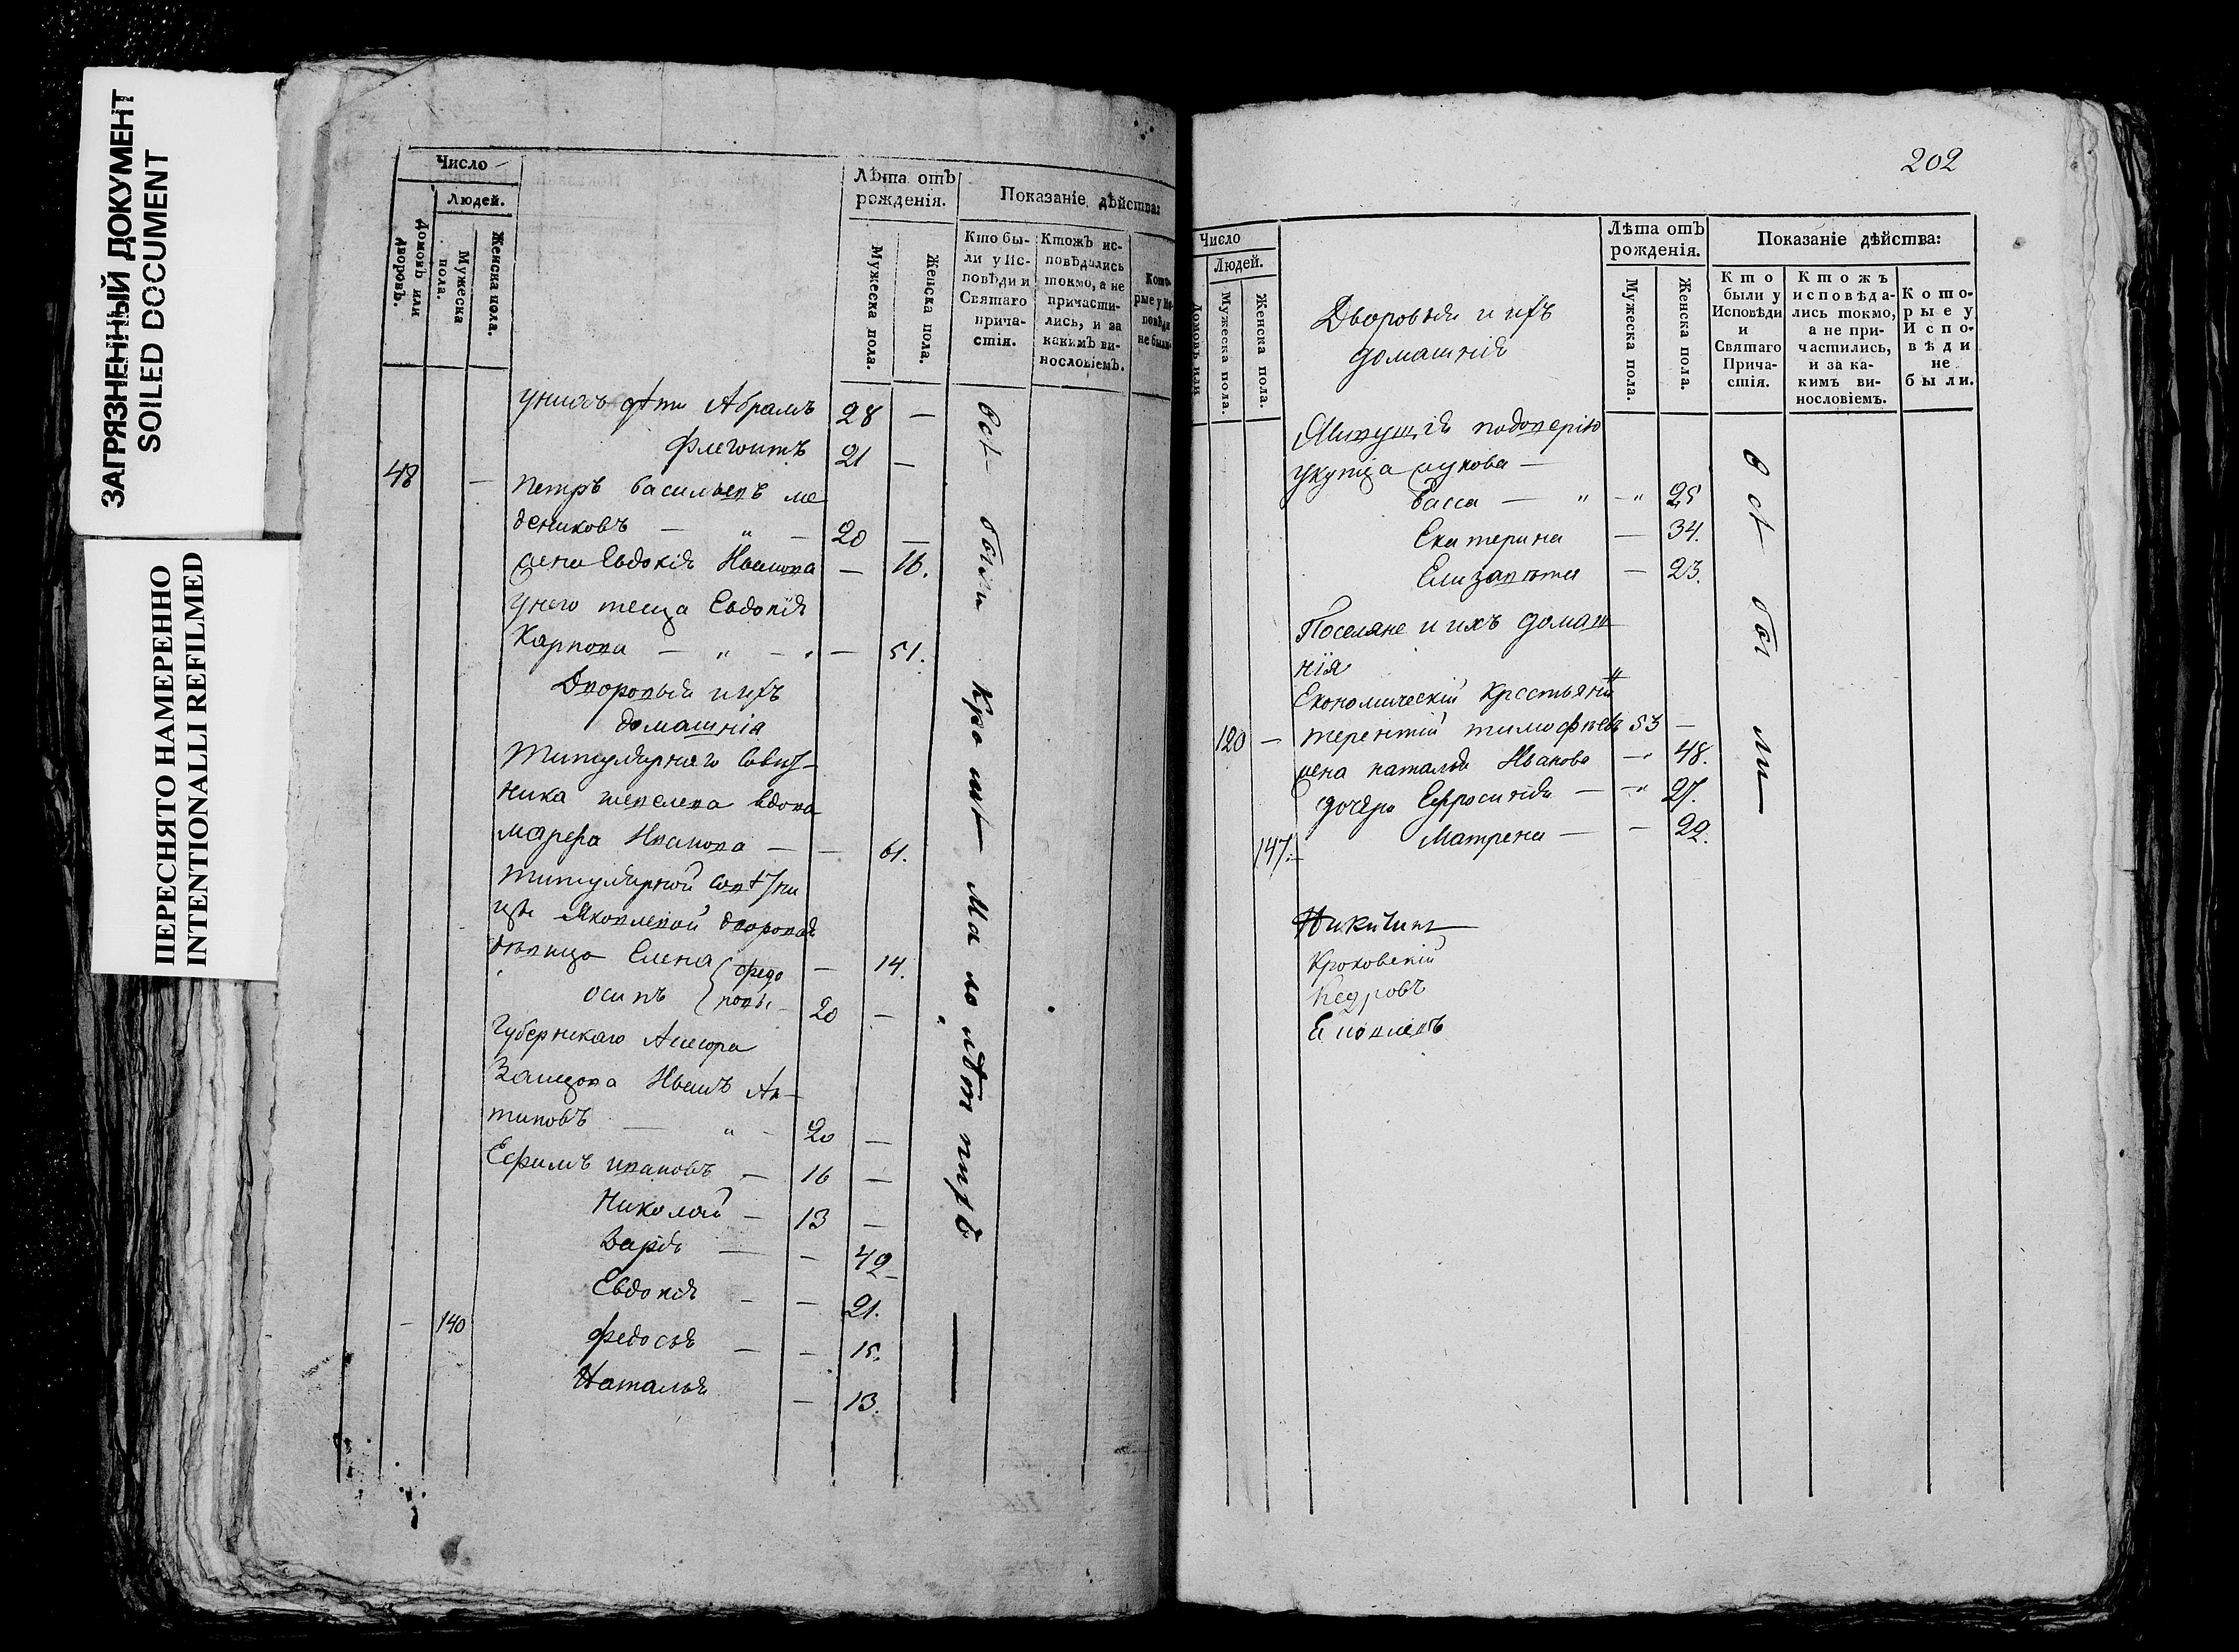 ЗАГРЯЗНЕННЫЙ ДОКУМЕНТ
SOILED DOCUMENT
ПЕРЕСНЯТО НАМЕРЕННО
INTENTIONALLI REFILMED
Число
Людей.
Домовъ или дворовъ.
Мужеска пола.
Женска пола.
Лѣта отъ рожденія.
Мужеска пола.
Женска пола.
Показаніе дѣйства:
Кто были у Исповѣди и Святаго причастія.
Ктожъ исповѣдались токмо, а не причастились, и за какимъ винословіемъ.
Которые у Исповѣди не были.
унихъ дѣти Абрамъ 28 —
Флегонтъ 21 —
48 — Петръ Васильевъ ме
дениковъ — " — 20 —
жена Евдокія Иванова — 16.
унего теща Евдокія
Карпова — " — " — 51.
Дворовыя и ихъ
домашнія
Титулярнаго Совѣт-
ника вдова
Марѳа Иванова — — 61.
Титулярной Совѣтни
цы Яковлевой дворовая
дѣвица Елена — 14.
Осипъ 20 —
Губернскаго
Иванъ Ан-
типовъ — " — 20 —
Ефимъ Ивановъ — 16 —
Николай — 13 —
Дарья — — 42 —
Евдокія — — 21.
— 140 Федосья — — 15.
Наталья — 13.
всѣ были кромѣ малолѣтнихъ —
202
Число
Людей.
Домовъ или
Мужеска пола.
Женска пола.
Дворовыя и ихъ
домашнія
Лѣта отъ рожденія.
Мужеска пола.
Женска пола.
Показаніе дѣйства:
Кто были у Исповѣди и Святаго Причастія.
Ктожъ исповѣдались токмо, а не причастились, и за какимъ винословіемъ.
Которые у Исповѣди не были.
Живущія
укупца Жукова —
Васса — " — " 25
Екатерина — 34.
Елизавета — 23.
Поселяне и ихъ домаш
нія
Економическій Крестьянинъ
120 — Терентій Тимофѣевъ 53 —
жена Наталья Иванова — " 48.
дочери Ефросинія — — " 27.
147. Матрена — — 22.
всѣ были —
Никитинъ
Кроковскій
Кедровъ